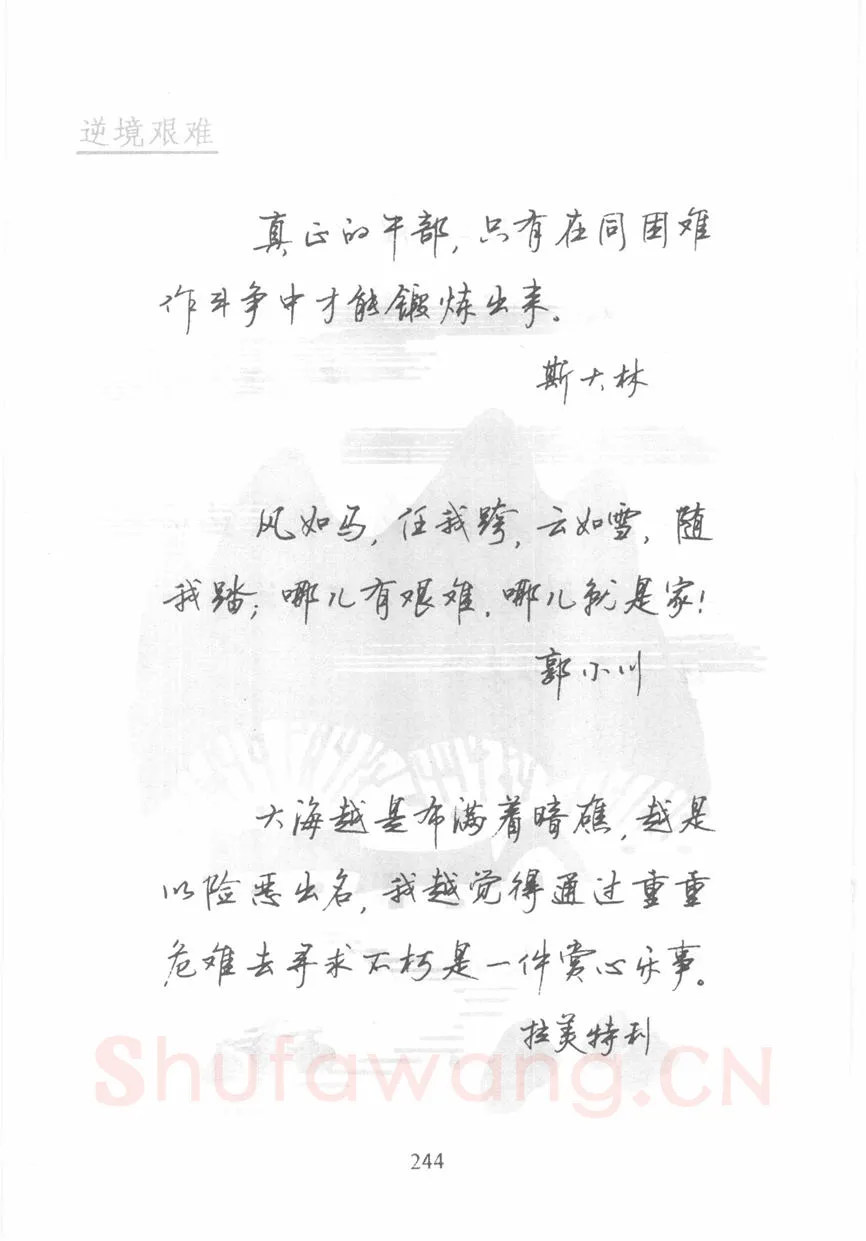 逆境艰难
真正的干部，只有在同困难
作斗争中才能锻炼出来。
斯大林
风如马，任我跨，云如雪，随
我踏；哪儿有艰难，哪儿就是家！
郭小川
大海越是布满着暗礁，越是
以险恶出名，我越觉得通过重重
危难去寻求不朽是一件赏心乐事。
拉美特利
Shufawang.CN
244